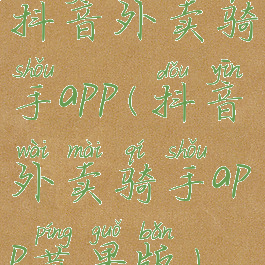 抖音外卖骑
shǒu dǒu yīn
手app(抖音
wài mài qí shǒu
外卖骑手ap
píng guǒ bǎn
p苹果版)